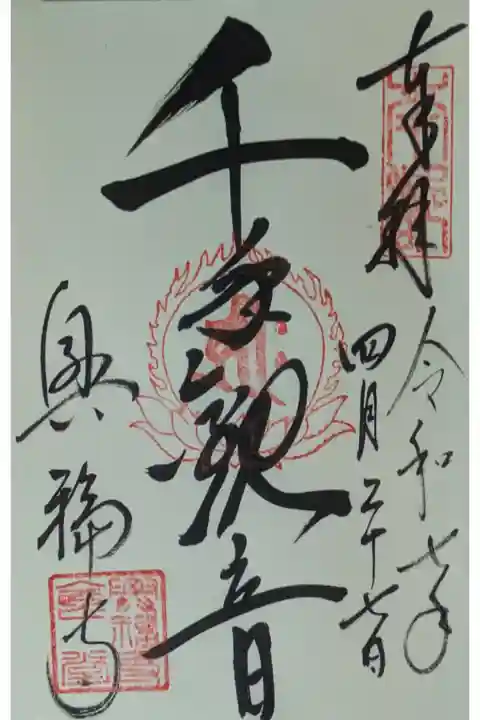 奉拝
令和七年
四月二十七日
千手観音
興福寺